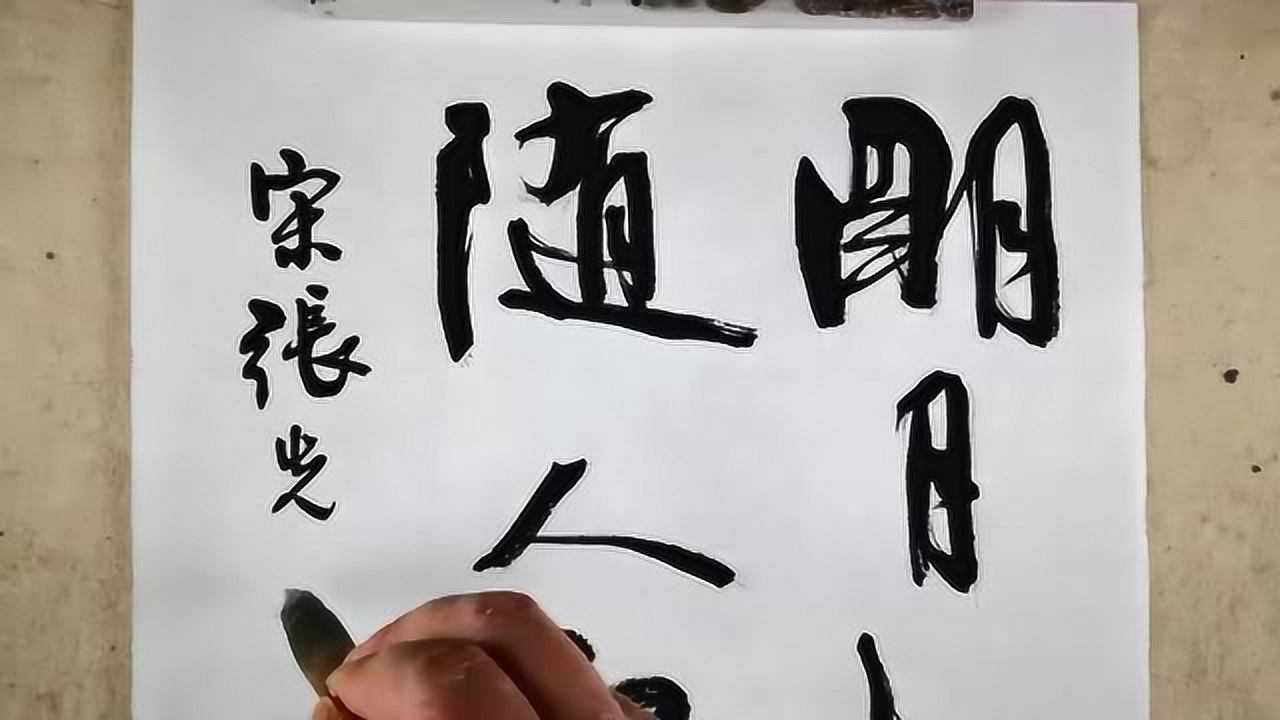 明月
随人
宋張先